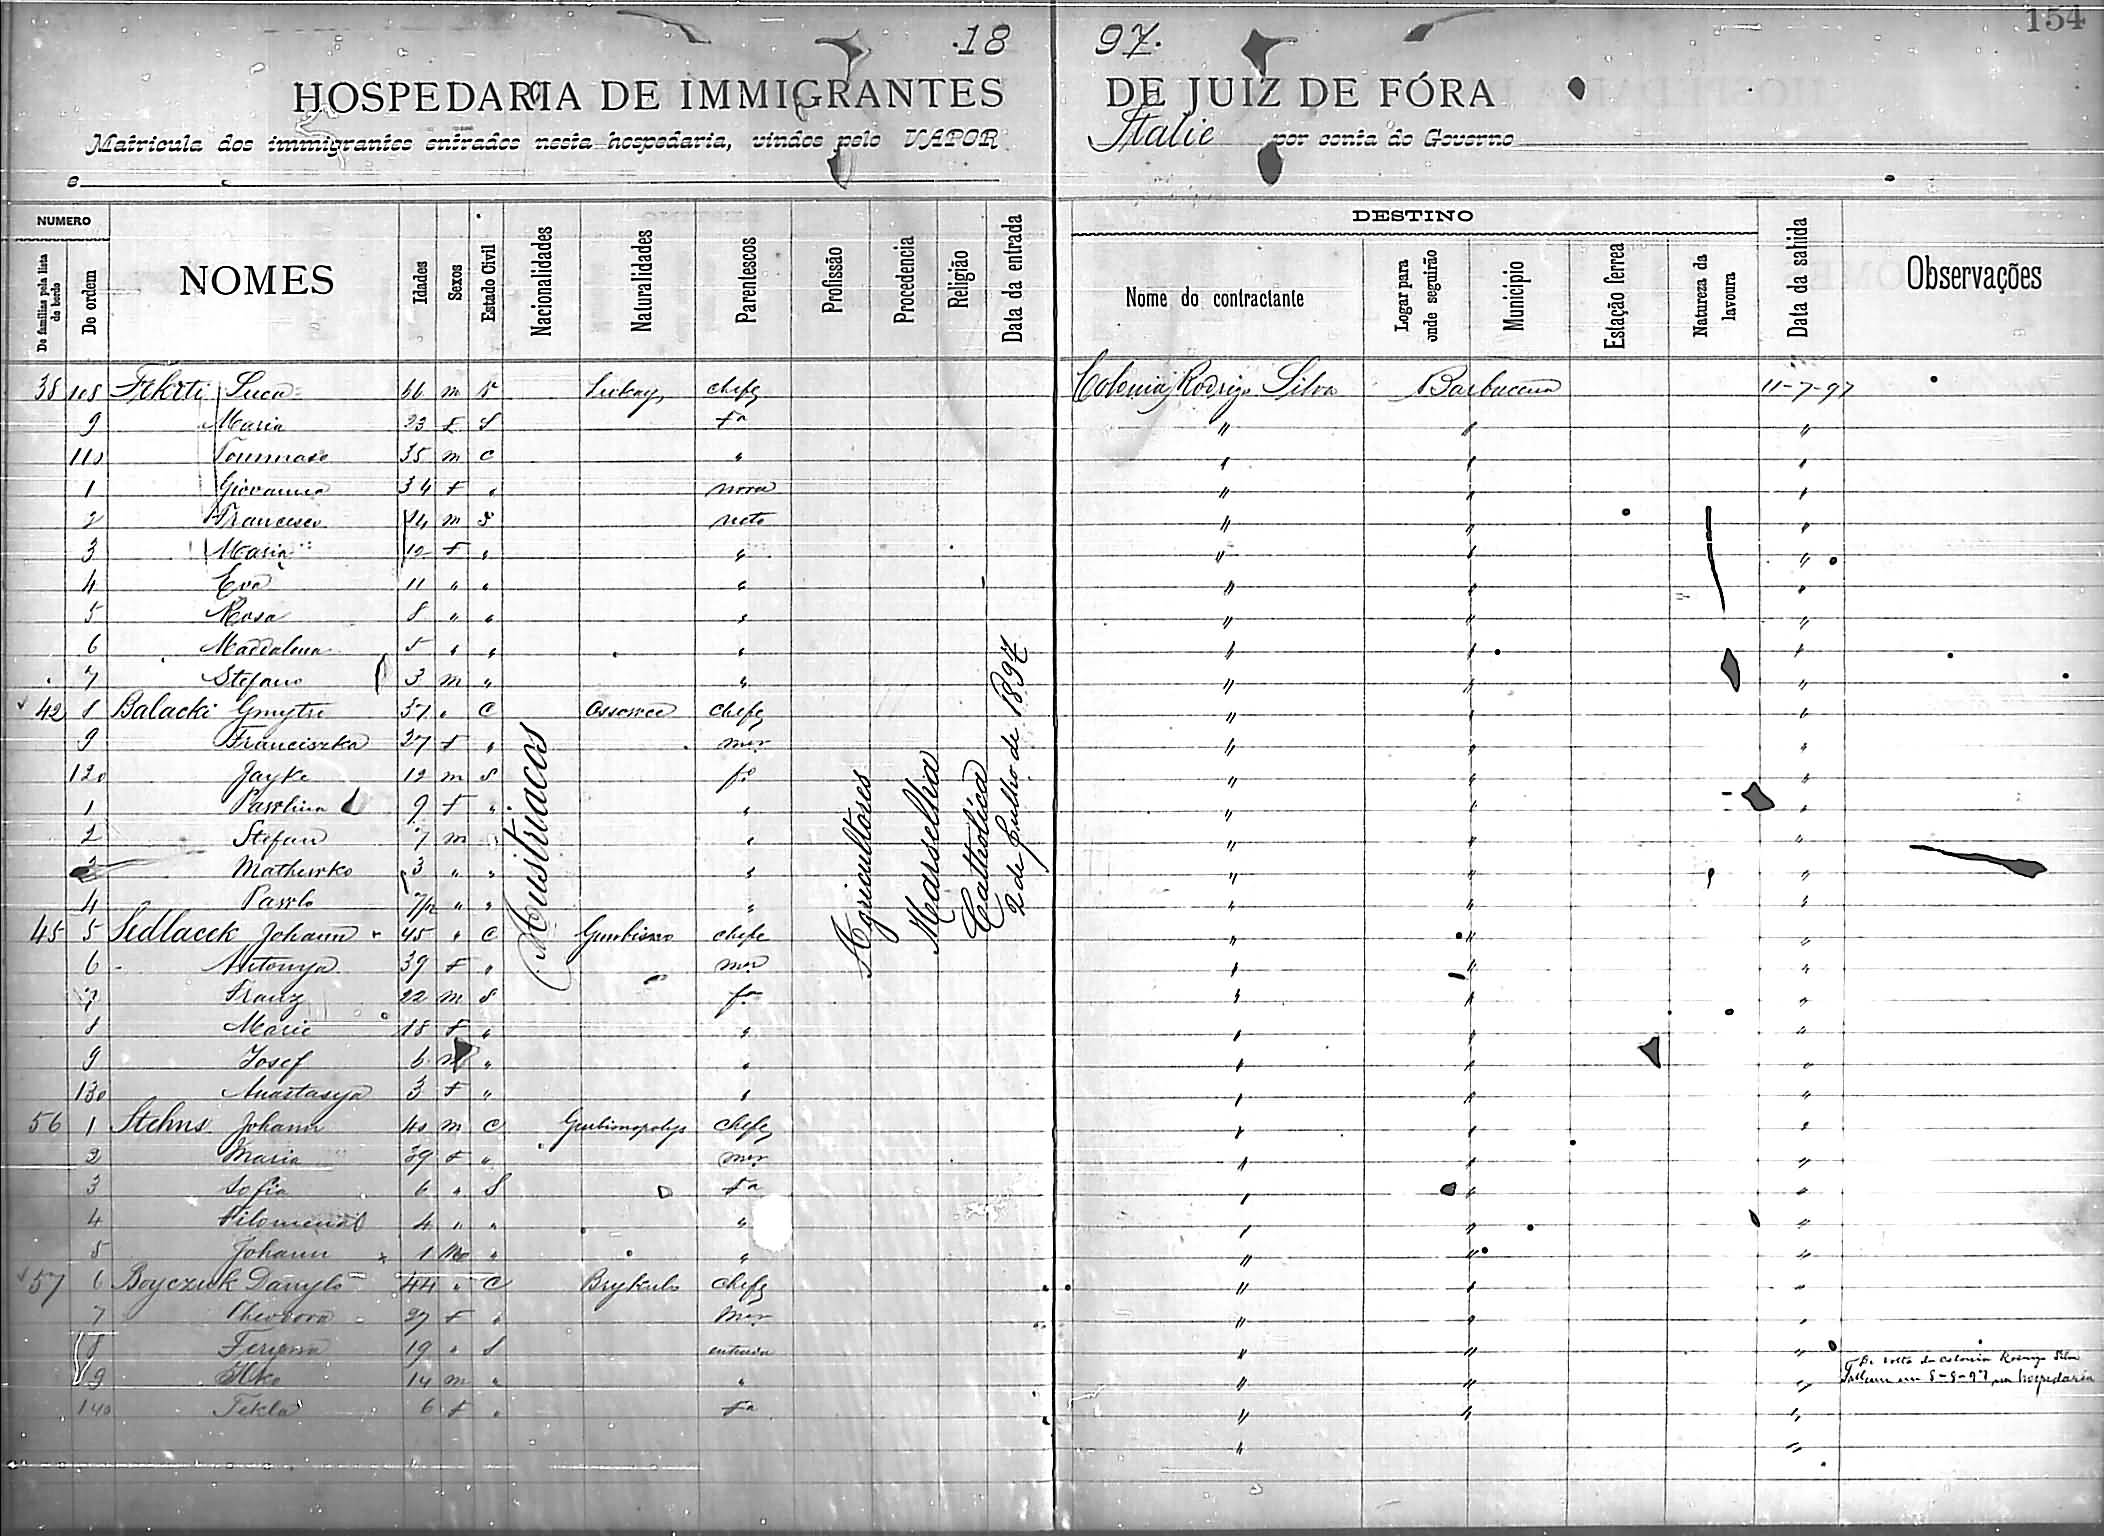 154
18 97.
HOSPEDARIA DE IMMIGRANTES DE JUIZ DE FÓRA
Matricula dos immigrantes entrados nesta hospedaria, vindos pelo VAPOR Italie por conta do Governo
e
NUMERO
De familias pela lista de bordo
Do ordem
NOMES
Idades
Sexos
Estado Civil
Nacionalidades
Naturalidades
Parentescos
Profissão
Procedencia
Religião
Data da entrada
DESTINO
Nome do contractante
Logar para onde seguirão
Municipio
Estação ferrea
Natureza da lavoura
Data da sahida
Observações
38 108 Fekéti Luca 66 m chefe Colonia Rodrigo Silva Barbacena 11-7-97
9 Maria 23 f S fa " " "
110 Tommaso 35 m C " " " "
1 Giovanna 34 f " nora " " "
2 Francesco 14 m S neto " " "
3 Maria 12 f " " " " "
4 Eva 11 " " " " " "
5 Rosa 8 " " " " " "
6 Maddalena 5 " " " " " "
7 Stefano 3 m " " " " "
42 8 Balacki Gmytri 37 " C chefe " " "
9 Franciszka 27 f " mer " " "
120 Jayko 12 m S fo " " "
1 Pawlina 9 f " " " " "
2 Stefan 7 m " " " " "
3 Mathewko 3 " " " " " "
4 Pawlo " " " " " "
45 5 Sedlacek Johann 45 " C chefe " " "
6 Antonya 39 f " mer " " "
7 Franz 22 m S fo " " "
8 Marie 18 f " " " " "
9 Josef 6 m " " " " "
130 Anastasya 3 f " " " " "
56 1 Stehns Johann 40 m C chefe " " "
2 Maria 39 f " mer " " "
3 Sofia 6 " S fa " " "
4 Filomena 4 " " " " " "
5 Johann 1 m " " " " "
57 6 Boyczuk Danylo 44 " C Brykula chefe " " "
7 Theodora 27 f " mer " " "
8 19 " S enteada " " "
9 Ilko 14 m " " " " "
140 Tekla 6 f " fa " " "
" "
Austriacos
Agricultores
Marselha
Catholica
2 de Julho de 1897
De volta da colonia Rodrigo Silva
em 5-9-97 na hospedaria